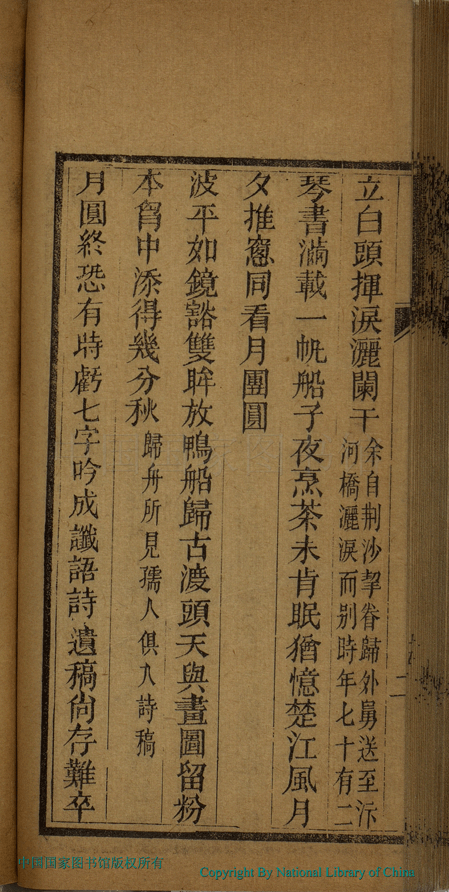 立白頭揮淚灑闌干余自荆沙挈眷歸外舅送至沂
河橋灑淚而别時年七十有二
琴書滿載一帆船子夜烹茶未肯眠猶憶楚江風月
夕推窻同看月團圓
波平如鏡豁雙眸放鴨船歸古渡頭天與畫圖留粉
本胷中添得幾分秋歸舟所見孺人俱入詩稿
月圓終恐有時虧七字吟成讖語詩遺稿尙存難卒
二
中国国家图书馆版权所有
Copyright By National Library of China